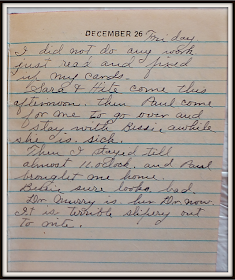 DECEMBER 26 Friday
I did not do any work
just read and fixed
up my cards.
Sara & Hite come this
afternoon. then Paul come
for me to go over and
stay with Bessie awhile
she is sick.
Then I stayed till
almost 11. oclock. and Paul
brought me home.
Bessie sure looks bad.
Dr. is her Dr. now.
It is terrible slipery out
to nite.